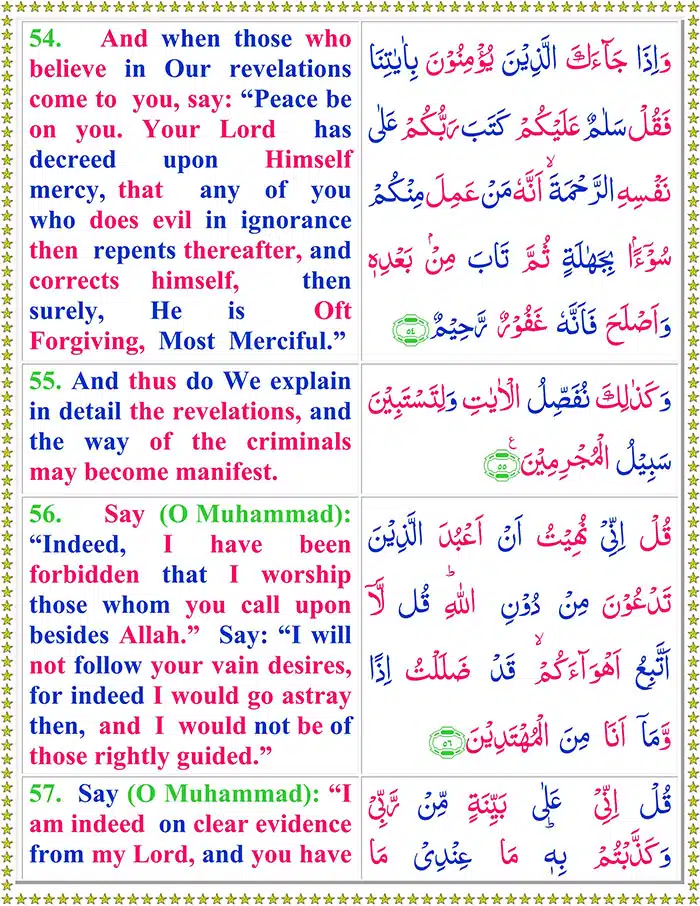 54. And when those who
believe in Our revelations
come to you, say: “Peace be
on you. Your Lord has
decreed upon Himself
mercy, that any of you
who does evil in ignorance
then repents thereafter, and
corrects himself, then
surely, He is Oft
Forgiving, Most Merciful.”
وَاِذَا جَآءَكَ الَّذِيْنَ يُؤْمِنُوْنَ بِاٰيٰتِنَا
فَقُلْ سَلٰمٌ عَلَيْكُمْ كَتَبَ رَبُّكُمْ عَلٰى
نَفْسِهِ الرَّحْمَةَ ۙ اَنَّهٗ مَنْ عَمِلَ مِنْكُمْ
سُوْٓءًۢا بِجَهٰلَةٍ ثُمَّ تَابَ مِنْۢ بَعْدِهٖ
وَاَصْلَحَ فَاَنَّهٗ غَفُوْرٌ رَّحِيْمٌ ﴿۵۴﴾
55. And thus do We explain
in detail the revelations, and
the way of the criminals
may become manifest.
وَكَذٰلِكَ نُفَصِّلُ الْاٰيٰتِ وَلِتَسْتَبِيْنَ
سَبِيْلُ الْمُجْرِمِيْنَ ﴿۵۵﴾ ع
56. Say (O Muhammad):
“Indeed, I have been
forbidden that I worship
those whom you call upon
besides Allah.” Say: “I will
not follow your vain desires,
for indeed I would go astray
then, and I would not be of
those rightly guided.”
قُلْ اِنِّىْ نُهِيْتُ اَنْ اَعْبُدَ الَّذِيْنَ
تَدْعُوْنَ مِنْ دُوْنِ اللّٰهِ ؕ قُل لَّاۤ
اَتَّبِعُ اَهْوَآءَكُمْ ۙ قَدْ ضَلَلْتُ اِذًا
وَّمَاۤ اَنَا مِنَ الْمُهْتَدِيْنَ ﴿۵۶﴾
57. Say (O Muhammad): “I
am indeed on clear evidence
from my Lord, and you have
قُلْ اِنِّىْ عَلٰى بَيِّنَةٍ مِّنْ رَّبِّىْ
وَكَذَّبْتُمْ بِهٖ ؕ مَا عِنْدِىْ مَا